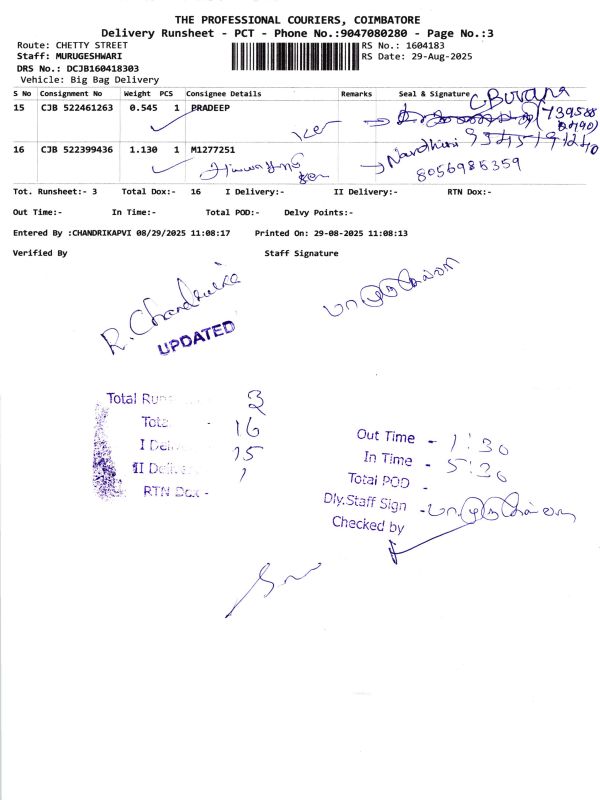 THE PROFESSIONAL COURIERS, COIMBATORE
Delivery Runsheet - PCT - Phone No.:9047080280 - Page No.:3
Route: CHETTY STREET
RS No.: 1604183
Staff: MURUGESHWARI
RS Date: 29-Aug-2025
DRS No.: DCJB160418303
Vehicle: Big Bag Delivery
S No Consignment No Weight PCS Consignee Details Remarks Seal & Signature
C. Buvana
15 CJB 522461263 0.545 1 PRADEEP
16 CJB 522399436 1.130 1 M1277251
Nandhini
8056985359
Tot. Runsheet:- 3 Total Dox:- 16 I Delivery:- II Delivery:- RTN Dox:-
Out Time:- In Time:- Total POD:- Delvy Points:-
Entered By :CHANDRIKAPVI 08/29/2025 11:08:17 Printed On: 29-08-2025 11:08:13
Verified By Staff Signature
R. Chandrika
UPDATED
Total Runs 3
Total - 16
I Deliv 15
II Deliv 1
RTN Dox -
Out Time - 1:30
In Time - 5:30
Total POD -
Dly.Staff Sign -
Checked by